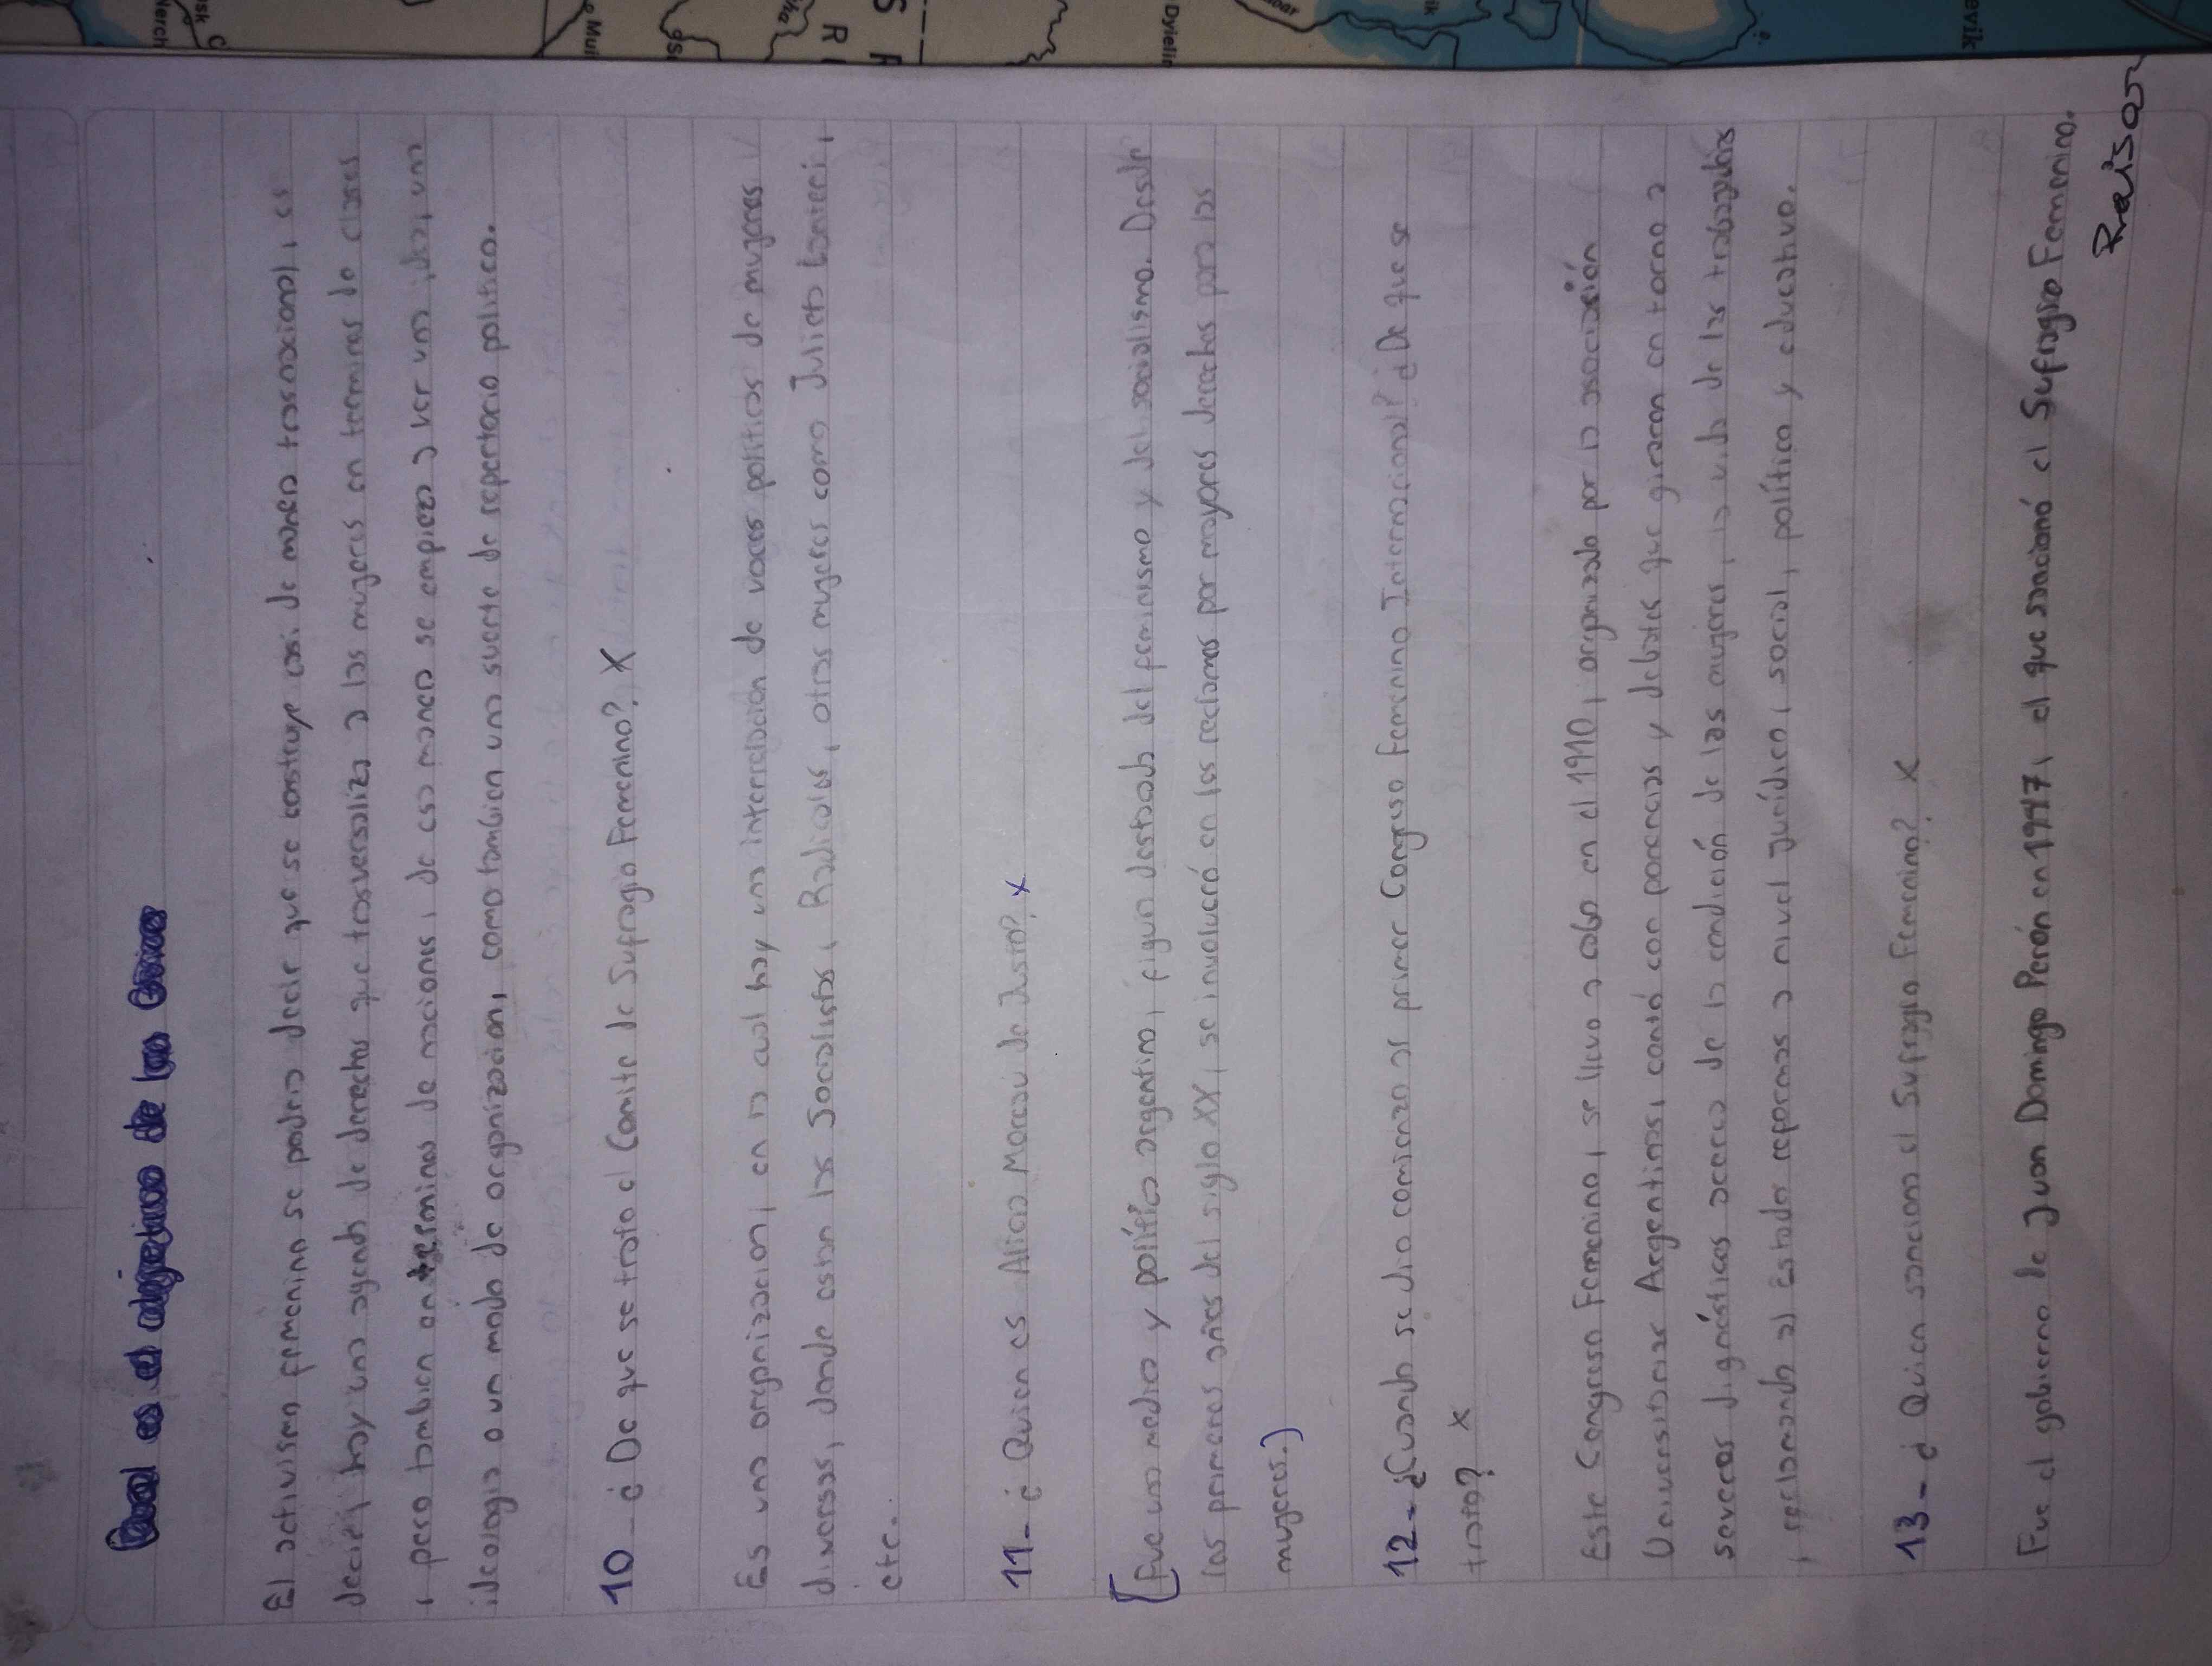 El activismo femenino se podria decir que se construye casi de manera trasnacional, es
decir, hay una agenda de derechos que trasversaliza a las mugeres en terminos de clases
, pero tambien en terminos de naciones, de esa manera se empieza a ver una idea, una
ideologia o un modo de organizacion, como tambien una suerte de repertorio politico.
10_ ¿De que se trata el Comite de Sufragio Femenino? X
Es una organizacion, en la cual hay una interrelacion de voces politicas de mugeres
diversas, donde estan las Socialistas, Radicales, otras mugeres como Julieta Lanteri,
etc.
11_ ¿Quien es Alicia Moreau de Justo? x
[Fue una medica y política argentina, figura destacada del feminismo y del socialismo. Desde
los primeros años del siglo XX, se involucró en los reclamos por mayores derechos para las
mugeres.)
12_ ¿Cuando se dio comienzo al primer Congreso Femenino Internacional? ¿De que se
trata? x
Este Congreso Femenino, se llevo a cabo en el 1910, organizado por la asociación
Universitarias Argentinas, contó con ponencias y debates que giraron en torno a
severos dignósticos acerca de la condición de las mujeres, la vida de las trabajadoras
, reclamando al Estado reformas a nivel jurídico, social, política y educativo.
13_ ¿Quien sanciona el Sufragio Femenino? x
Fue el gobierno de Juan Domingo Perón en 1947, el que sancionó el Sufragio Femenino.
Revisar
S R
Dyielin
evik
Mui
nerch